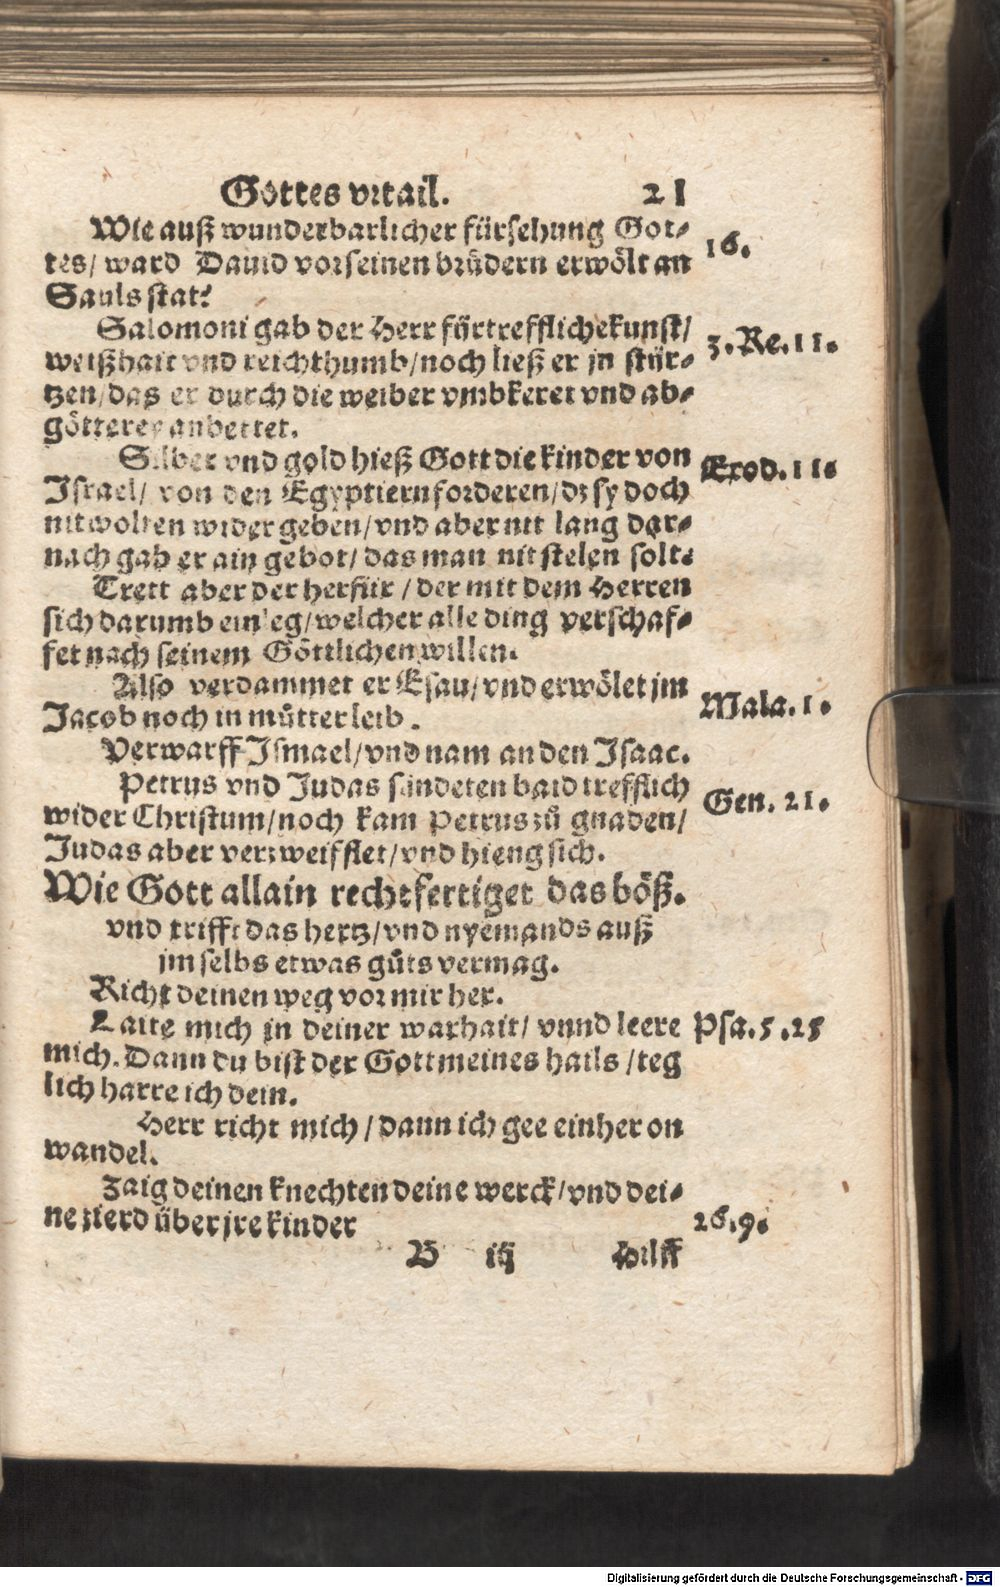 Gottes vrtail. 21
Wie auß wunderbarlicher fürsehung Got-
tes/ ward Dauid vor seinen brüdern erwölt an
Sauls stat?
16.
Salomoni gab der Herr fürtrefflichekunst/
weißhait vnd reichthumb/noch ließ er jn stür-
tzen/das er durch die weiber vmbkeret vnd ab-
götterey anbettet.
3.Re.11.
Silber vnd gold hieß Gott die kinder von
Israel/ von den Egyptiern forderen/dz sy doch
nit wolten wider geben/vnd aber nit lang dar-
nach gab er ain gebot/ das man nit stelen solt.
Exod.11.
Trett aber der herfür / der mit dem Herren
sich darumb einleg/welcher alle ding verschaf-
fet nach seinem Göttlichen willen.
Also verdammet er Esau/vnd erwölet jm
Jacob noch in můtter leib.
Mala.1.
Verwarff Ismael/vnd nam an den Isaac.
Petrus vnd Judas sündeten baid trefflich
wider Christum/noch kam Petrus zů gnaden/
Judas aber verzweifflet/vnd hieng sich.
Gen.21.
Wie Gott allain rechtfertiget das böß.
vnd trifft das hertz/vnd nyemands auß
jm selbs etwas gůts vermag.
Richt deinen weg vor mir her.
Laite mich in deiner warhait/ vnnd leere
mich. Dann du bist der Gott meines hails /teg
lich harre ich dein.
Psa.5.25
Herr richt mich / dann ich gee einher on
wandel.
Zaig deinen knechten deine werck/vnd dei-
ne zierd über jre kinder
26.9.
B iij Hilff
Digitalisierung gefördert durch die Deutsche Forschungsgemeinschaft - DFG